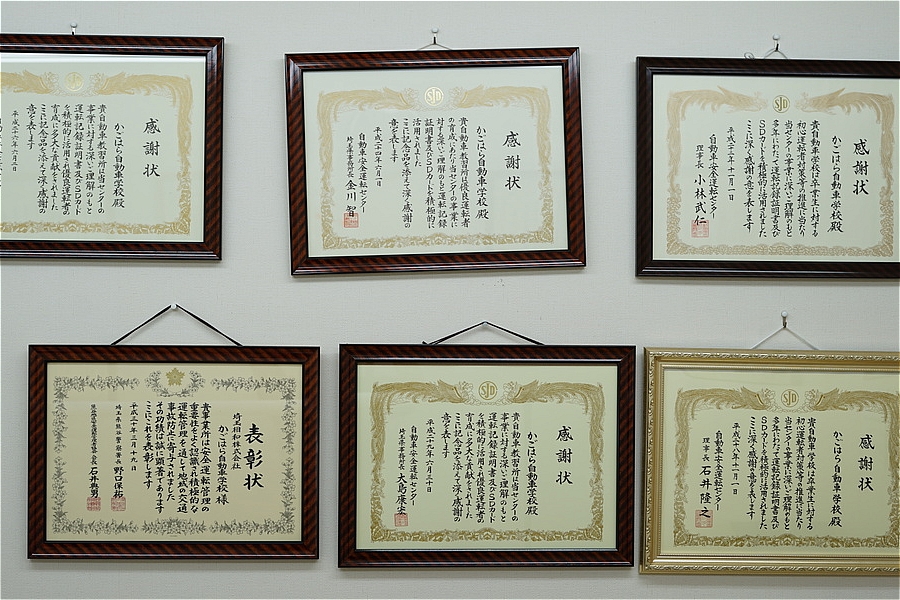 感謝状
かごはら自動車学校殿
貴自動車教習所は当センターの
事業に対する深いご理解のもと
運転記録証明書及びSDカード
を積極的に活用され優良運転者の
育成に多大な貢献をされました
ここに記念品を添えて深く感謝の
意を表します
平成二十六年六月六日
SJD
感謝状
かごはら自動車学校殿
貴自動車教習所は優良運転者
の育成にあたり当センターの事業に
対する深いご理解のもと運転記録
証明書及びSDカードを積極的に
活用されました
ここに記念品を添えて深く感謝の
意を表します
自動車安全運転センター
埼玉県事務所長 金川 智
SJD
感謝状
かごはら自動車学校殿
貴自動車学校は卒業生に対する
初心運転者対策等の推進に当たり
当センターの事業に深いご理解のもと
多年にわたって運転記録証明書及び
SDカードを積極的に活用されました
ここに深く感謝の意を表します
自動車安全運転センター
理事長 小林武仁
表彰状
埼玉昭和株式会社
かごはら自動車学校様
貴事業所は安全運転管理の
重要性をよく認識され積極的な
運転管理を通じて地域の交通
事故防止に寄与されました
その功績は誠に顕著であります
ここにこれを表彰します
平成三十年三月十九日
埼玉県熊谷警察署長 野口保祐
SJD
感謝状
かごはら自動車学校殿
貴自動車教習所は当センターの
事業に対する深いご理解のもと
運転記録証明書及びSDカード
を積極的に活用され優良運転者の
育成に多大な貢献をされました
ここに記念品を添えて深く感謝の
意を表します
平成二十九年六月三十日
自動車安全運転センター
埼玉県事務所長 大島康宏
SJD
感謝状
かごはら自動車学校殿
貴自動車学校は卒業生に対する
初心運転者対策等の推進に当たり
当センターの事業に深いご理解のもと
多年にわたって運転記録証明書及び
SDカードを積極的に活用されました
ここに深く感謝の意を表します
平成二十八年十一月一日
自動車安全運転センター
理事長 石井隆之